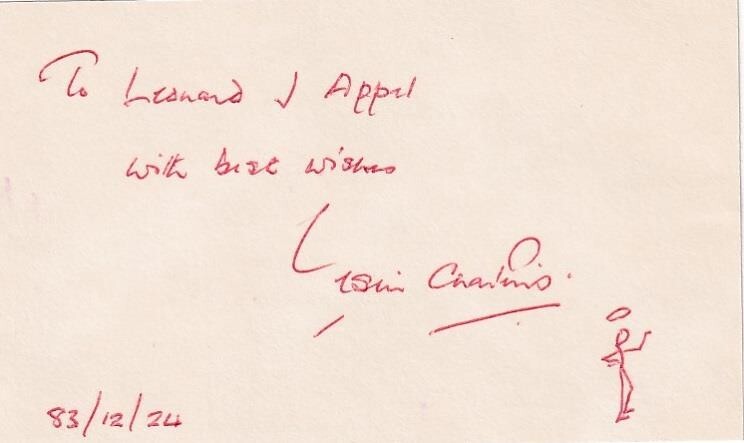 To Leonard J Appel
with best wishes
Leslie Charteris.
83/12/24